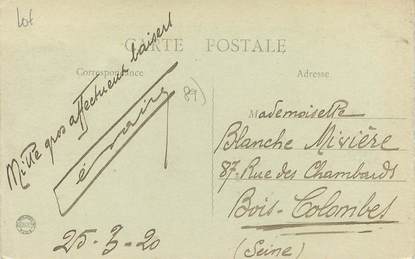 Lot
CARTE POSTALE
Correspondance
Adresse
Mille gros affectueux baisers
89)
Mademoiselle
Blanche Mivière
87-Rue des Chambards
Bois-Colombes
(Seine)
25-3-20